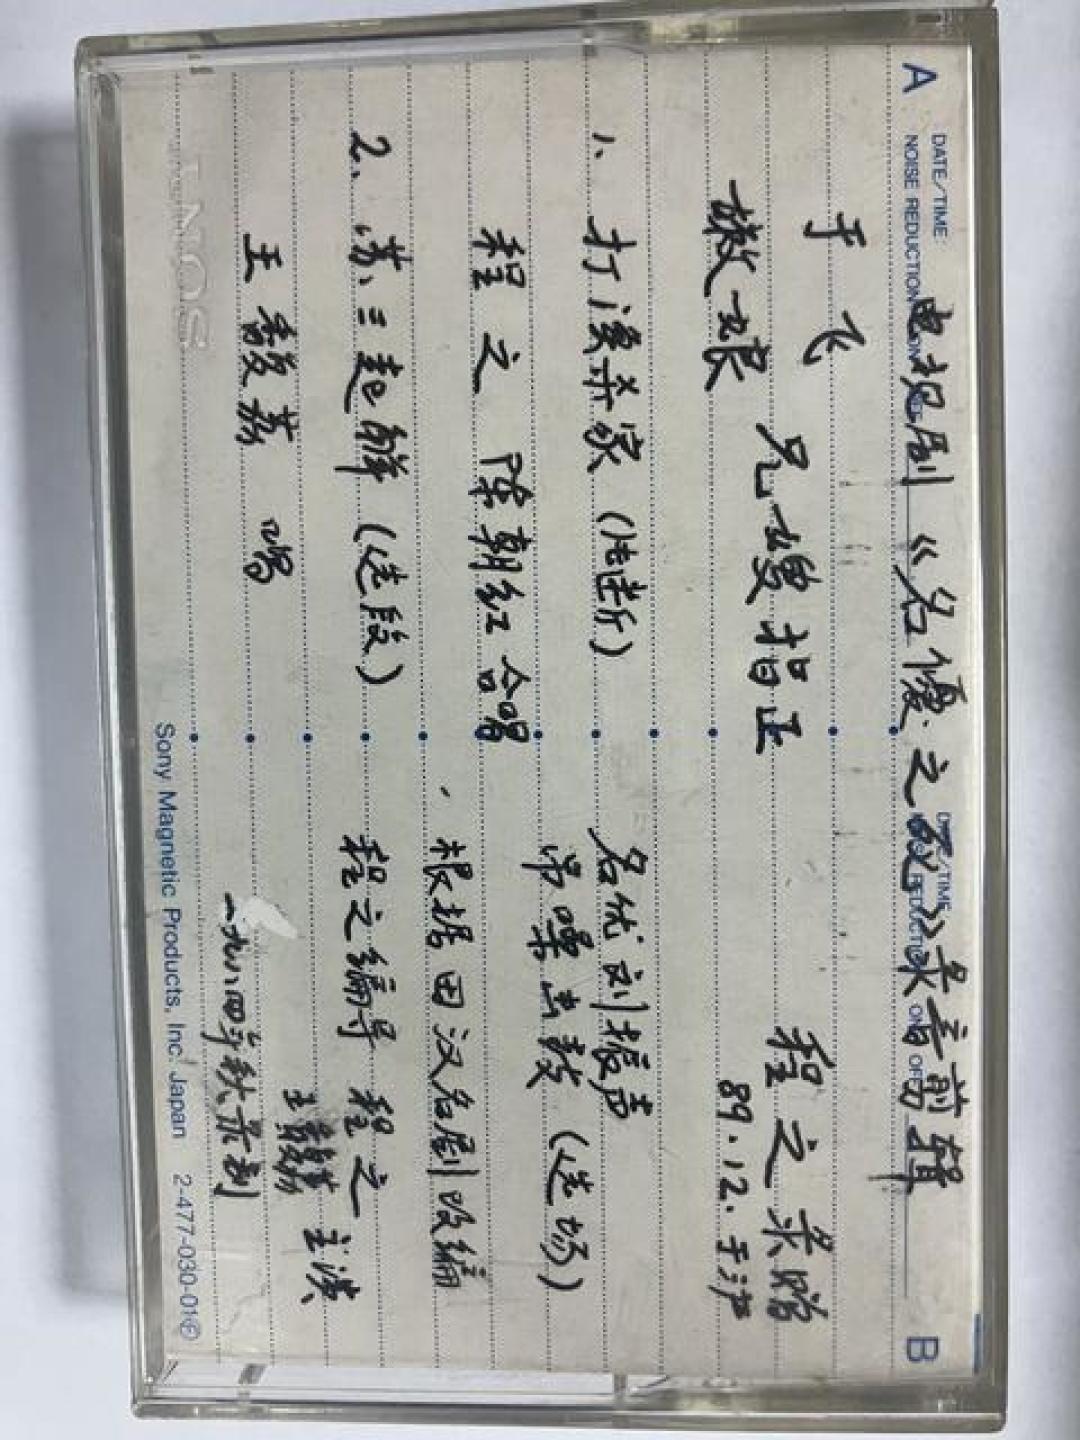 A
B
DATE/TIME:
NOISE REDUCTION
DATE/TIME
电视剧《名優之死》录音剪辑
于飞
嫩娘 兄嫂指正
程之录赠
89.12.于沪
1、打渔杀家(片断)
程之 陈朝红 合唱
2、苏三起解(选段)
王馥荔 唱
名优刘振声
吊嗓 (选场)
根据田汉名剧改编
程之编导 程之
王馥荔 主演
一九八四年秋录制
SONY
Sony Magnetic Products, Inc. Japan 2-477-030-01